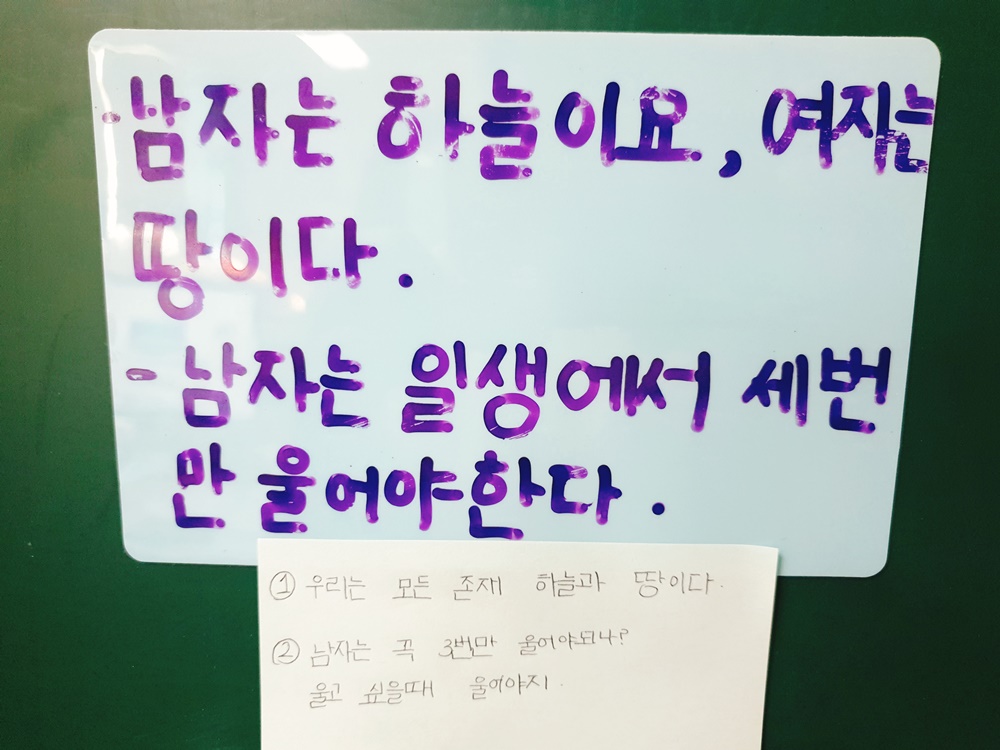 - 남자는 하늘이요, 여자는
땅이다.
- 남자는 일생에서 세번
만 울어야한다.
① 우리는 모든 존재 하늘과 땅이다.
② 남자는 꼭 3번만 울어야되나?
울고 싶을때 울어야지.